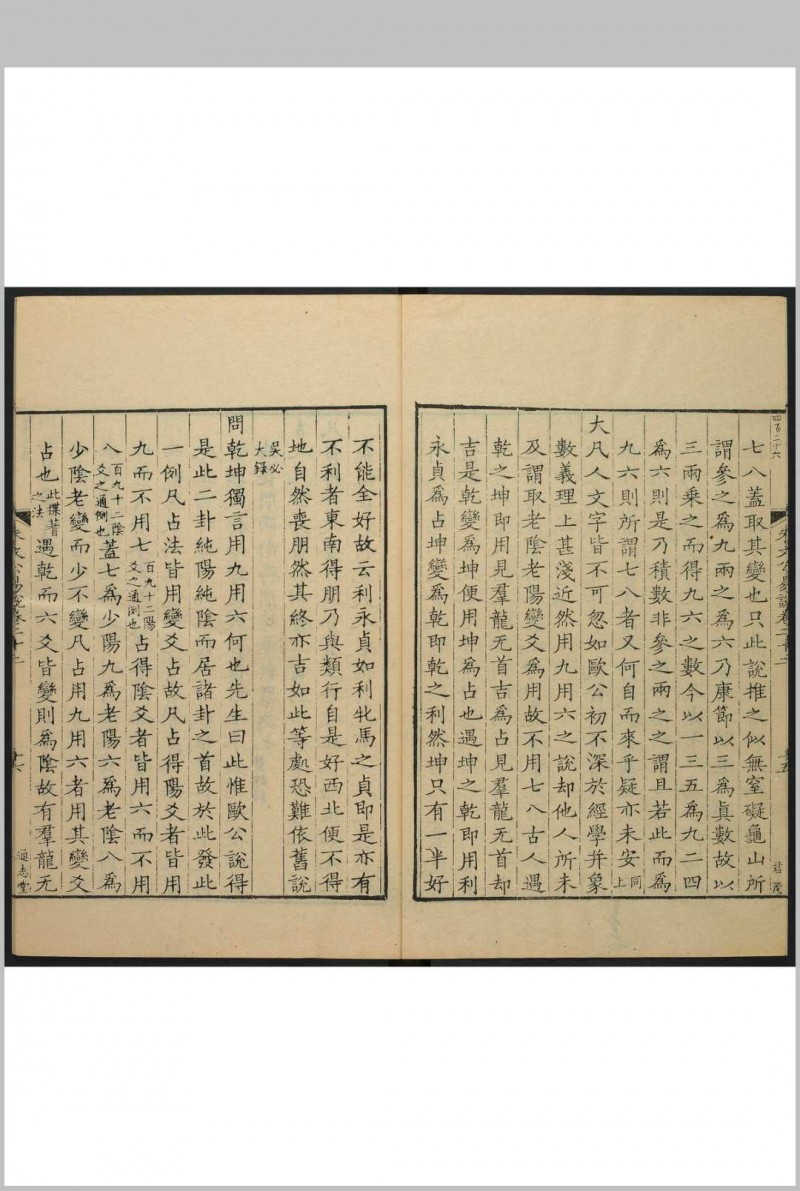 四百二十六
七八蓋取其變也只此說推之似無窒礙龜山所
謂參之爲九兩之爲六乃康節以三爲眞數故以
三兩乘之而得九六之數今以一三五爲九二四
爲六則是乃積數非參之兩之之謂且若此而爲
九六則所謂七八者又何自而來乎疑亦未安同上
大凡人文字皆不可忽如歐公初不深於經學并象
數義理上甚淺近然用九用六之說却他人所未
及謂取老陰老陽變爻爲用故不用七八古人遇
乾之坤即用見羣龍无首吉爲占見羣龍无首却
吉是乾變爲坤便用坤爲占也遇坤之乾即用利
永貞爲占坤變爲乾即乾之利然坤只有一半好
不能全好故云利永貞如利牝馬之貞即是亦有
不利者東南得朋乃與類行自是好西北便不得
地自然喪朋然其終亦吉如此等處恐難依舊說
吳必大錄
問乾坤獨言用九用六何也先生曰此惟歐公說得
是此二卦純陽純陰而居諸卦之首故於此發此
一例凡占法皆用變爻占故凡占得陽爻者皆用
九而不用七百九十二陽爻之通例也占得陰爻者皆用六而不用
八百九十二陰爻之通例也蓋七爲少陽九爲老陽六爲老陰八爲
少陰老變而少不變凡占用九用六者用其變爻
占也此揲蓍之法遇乾而六爻皆變則爲陰故有羣龍无
通志堂